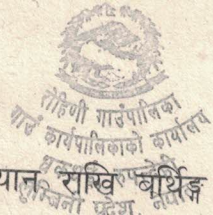 रोहिणी गाउँपालिका
गाउँ कार्यपालिकाको कार्यालय
यान राखि बर्थिङ्ग
प्रदेश, नेपाल